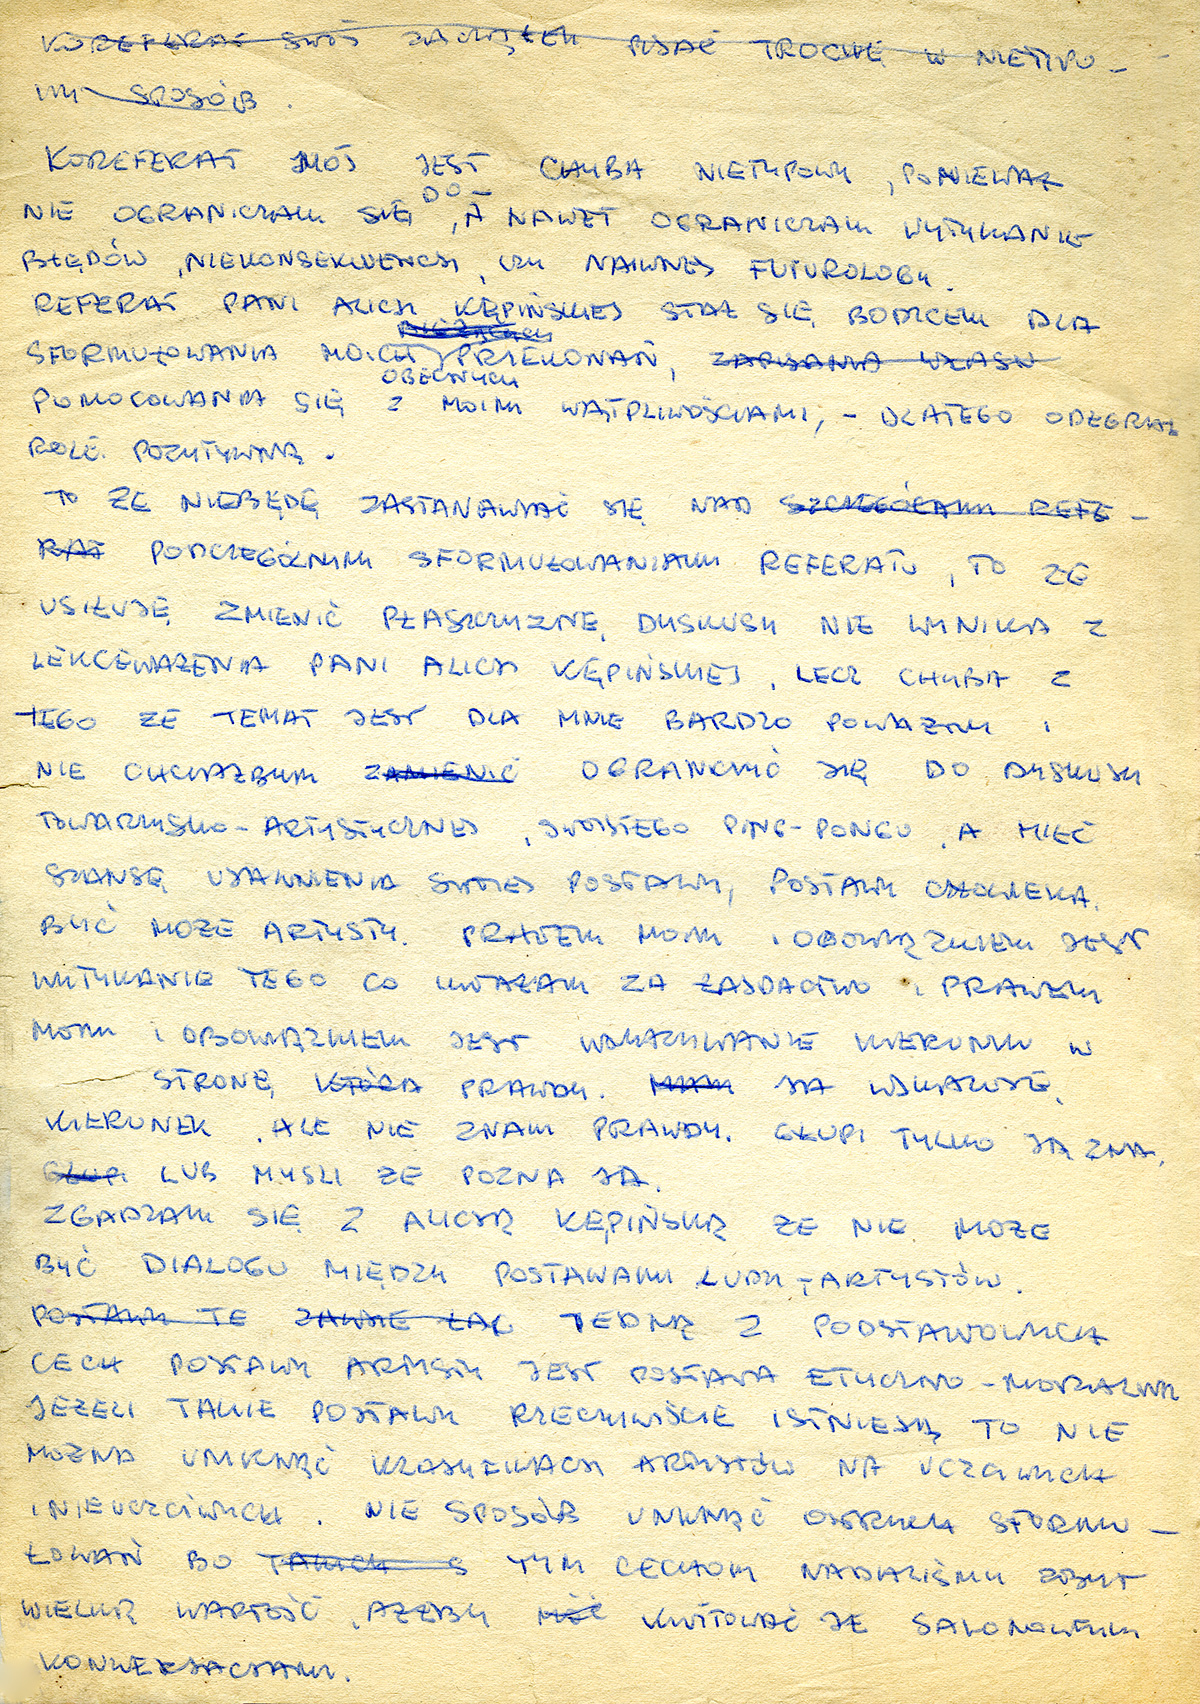 KOREFERAT SWÓJ ZACZĄŁEM PISAĆ TROCHĘ W NIETYPO-
WY SPOSÓB.
KOREFERAT MÓJ JEST CHYBA NIETYPOWY, PONIEWAŻ
NIE OGRANICZAM SIĘ DO-, A NAWET OGRANICZAM WYTYKANIE
BŁĘDÓW, NIEKONSEKWENCJI, CZY NAIWNEJ FUTUROLOGII.
REFERAT PANI ALICJI KĘPIŃSKIEJ STAŁ SIĘ BODŹCEM DLA
SFORMUŁOWANIA MOICH OBECNYCH PRZEKONAŃ, ZAPISANIA WŁASN
POMOCOWANIA SIĘ Z MOIMI WĄTPLIWOŚCIAMI, - DLATEGO ODEGRAŁ
ROLĘ POZYTYWNĄ.
TO ŻE NIEBĘDĘ ZASTANAWIAĆ SIĘ NAD SZCZEGÓŁAMI REFE-
RAT PODCZEGÓLNYMI SFORMUŁOWANIAMI REFERATU, TO ŻE
USIŁUJĘ ZMIENIĆ PŁASZCZYZNĘ DYSKUSJI NIE WYNIKA Z
LEKCEWAŻENIA PANI ALICJI KĘPIŃSKIEJ, LECZ CHYBA Z
TEGO ŻE TEMAT JEST DLA MNIE BARDZO POWAŻNY I
NIE CHCIAŁBYM ZAMIENIĆ OGRANICZYĆ SIĘ DO DYSKUSJI
TOWARZYSKO-ARTYSTYCZNEJ, SWOISTEGO PING-PONGU, A MIEĆ
SZANSĘ UJAWNIENIA SWOJEJ POSTAWY, POSTAWY CZŁOWIEKA,
BYĆ MOŻE ARTYSTY. PRAWEM MOIM I OBOWIĄZKIEM JEST
WYTYKANIE TEGO CO UWAŻAM ZA ŁAJDACTWO I PRAWEM
MOIM I OBOWIĄZKIEM JEST WSKAZYWANIE KIERUNKU W
STRONĘ KTÓRA PRAWDY. MAM JA WSKAZUJĘ
KIERUNEK, ALE NIE ZNAM PRAWDY. GŁUPI TYLKO JĄ ZNA,
GŁUPI LUB MYŚLI ŻE POZNA JĄ.
ZGADZAM SIĘ Z ALICJĄ KĘPIŃSKĄ ŻE NIE MOŻE
BYĆ DIALOGU MIĘDZY POSTAWAMI LUDZI-ARTYSTÓW.
POSTAWY TE ZAWSZE ŁĄC JEDNĄ Z PODSTAWOWYCH
CECH POSTAWY ARTYSTY JEST POSTAWA ETYCZNO-MORALNA
JEŻELI TAKIE POSTAWY RZECZYWIŚCIE ISTNIEJĄ TO NIE
MOŻNA UNIKNĄĆ KLASYFIKACJI ARTYSTÓW NA UCZCIWYCH
I NIEUCZCIWYCH. NIE SPOSÓB UNIKNĄĆ OSTRYCH SFORMU-
ŁOWAŃ BO TAKICH S TYM CECHOM NADALIŚMY ZBYT
WIELKĄ WARTOŚĆ, AŻEBY MÓC KWITOWAĆ JE SALONOWYMI
KONWERSACJAMI.